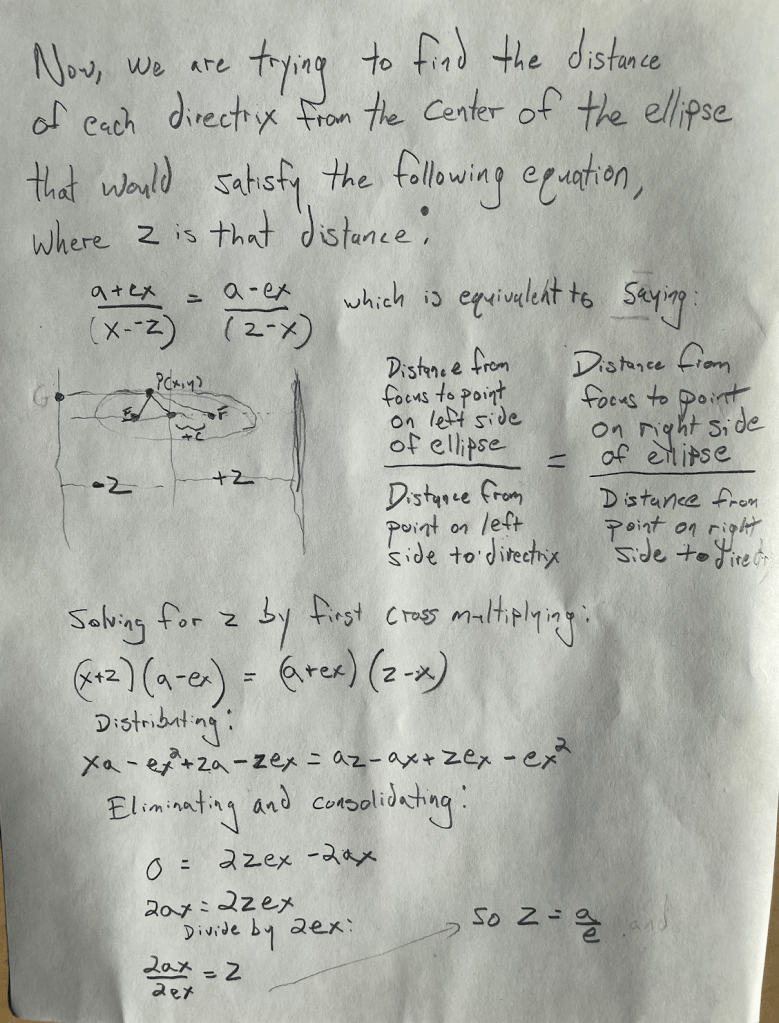 Now, we are trying to find the distance
of each directrix from the center of the ellipse
that would satisfy the following equation,
where z is that distance:
a+ex/(x--z) = a-ex/(z-x) which is equivalent to saying:
G P(x,y)
E F
+c
-z +z
Distance from
focus to point
on left side
of ellipse
Distance from
point on left
side to directrix
=
Distance from
focus to point
on right side
of ellipse
Distance from
point on right
side to direc
Solving for z by first cross multiplying:
(x+z)(a-ex) = (a+ex)(z-x)
Distributing:
xa - ex²+za-zex = az-ax+zex-ex²
Eliminating and consolidating:
0 = 2zex -2ax
2ax = 2zex
Divide by 2ex:
2ax/2ex = z
so z = a/e and